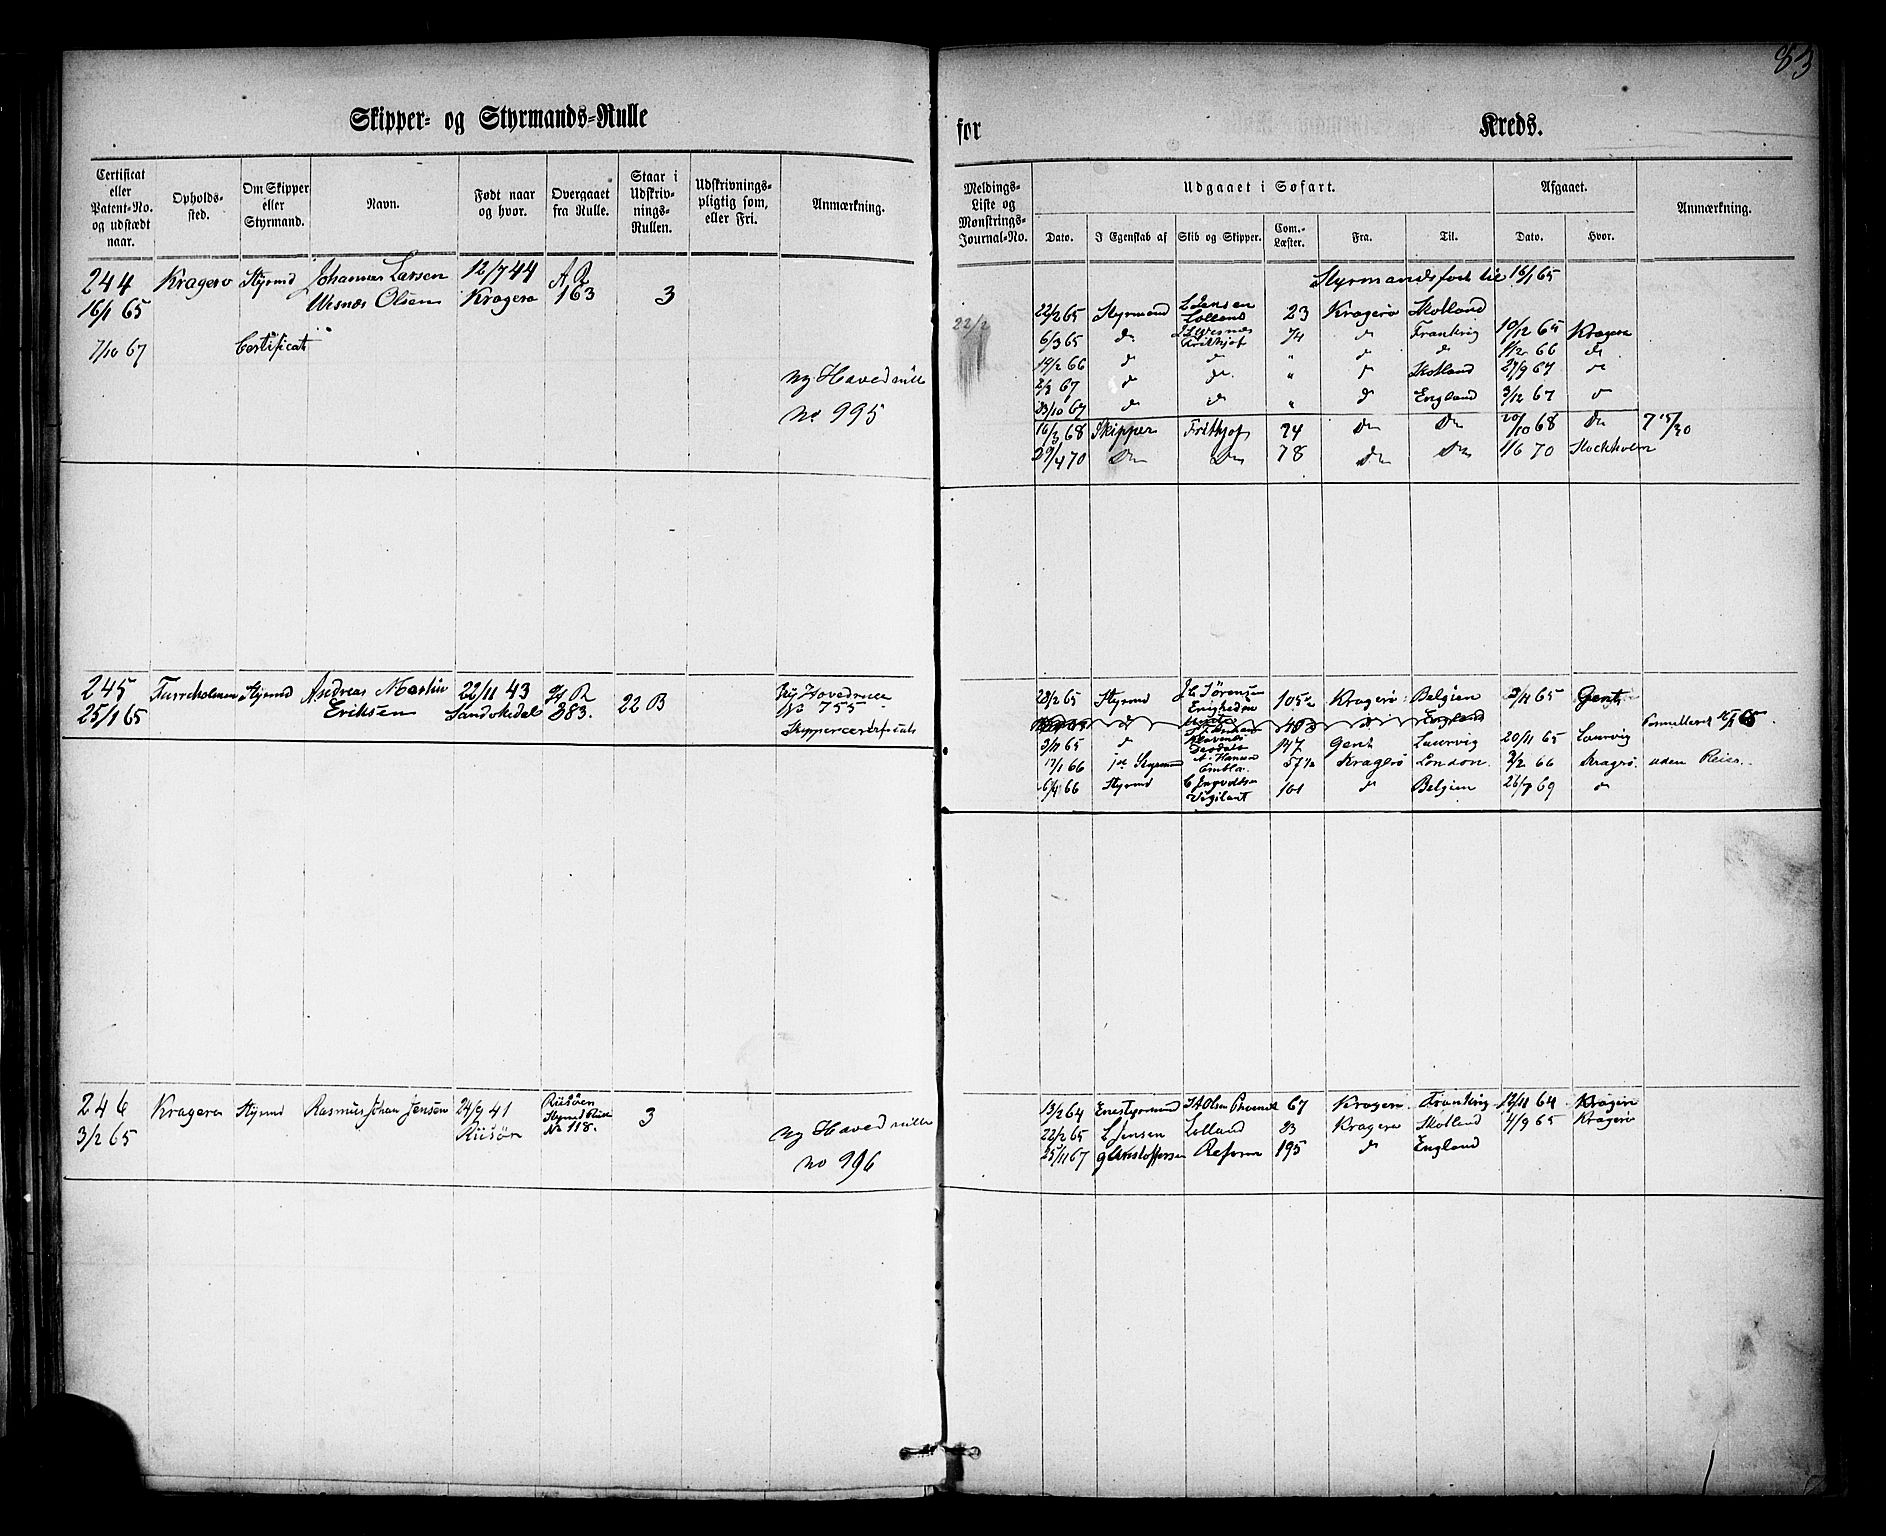 83
Skipper- og Styrmands-Rulle
for Kreds.
Certifikat eller Patent-No. og udstædt naar.
Opholdssted.
Om Skipper eller Styrmand.
Navn.
Født naar og hvor.
Overgaaet fra Rulle.
Staar i Udskrivnings-Rullen.
Udskrivningspligtig som, eller Fri.
Anmærkning.
Meldings-Liste og Mønstrings-Journal-No.
Udgaaet i Søfart.
Afgaaet.
Anmærkning.
Dato. I Egenskab af Skib og Skipper. Com.-Læster. Fra. Til. Dato. Hvor.
244 Kragerø Styrmd Johannes Larsen 12/7 44 A R
16/1 65 Wesnes Olsen Kragerø 163 3
7/10 67 Certifikat
Ny Hovedrulle
No 995
Styrmandsfart til 16/1 65
22/2
22/2 65 Styrmand L Jensen Lolland 23 Kragerø Skotland
6/3 65 do J L Wesnes Frithjof 74 do Frankrig 10/12 65 Kragerø
14/2 66 do do " do do 1/12 66 do
2/3 67 do do " do Skotland 27/9 67 do
23/10 67 do do " do England 3/12 67 do
16/3 68 Skipper Frithjof 74 Do Do 20/10 68 Do
29/4 70 Do Do 78 Do Do 1/6 70 Stockholm
245 Furreholmen Styrmd Andreas Martin 22/11 43 A R
25/1 65 Eriksen Sandøkedal 383. 22 B
Ny Hovedrulle
No 755
Skippercertifikat
28/2 65 Styrmd J. C. Sørensen Enigheden 105 1/2 Kragerø Belgien 3/11 65 Gent
England
3/11 65 do 147 Gent Laurvig 20/11 65 Laurvig
17/1 66 1ste Styrmd A. Hansen Embla 57 1/2 Kragerø London 2/2 66 Kragrø. uden Reise
6/4 66 Styrmd Vigilant 101 do Belgien 26/7 69 do
246 Kragerø Styrmd Rasmus Johan Jensen 24/9 41 Risøer
3/2 65 Risør Styrmd Rulle No 118. 3
Ny Hovedrulle
No 996
13/2 64 Enestyrmand 67 Kragerø Frankrig 12/11 64 Kragerø
22/2 65 L Jensen Lolland 23 Kragerø Skotland 4/9 65 Kragerø
25/11 67 G Christoffersen Reform 195 do England